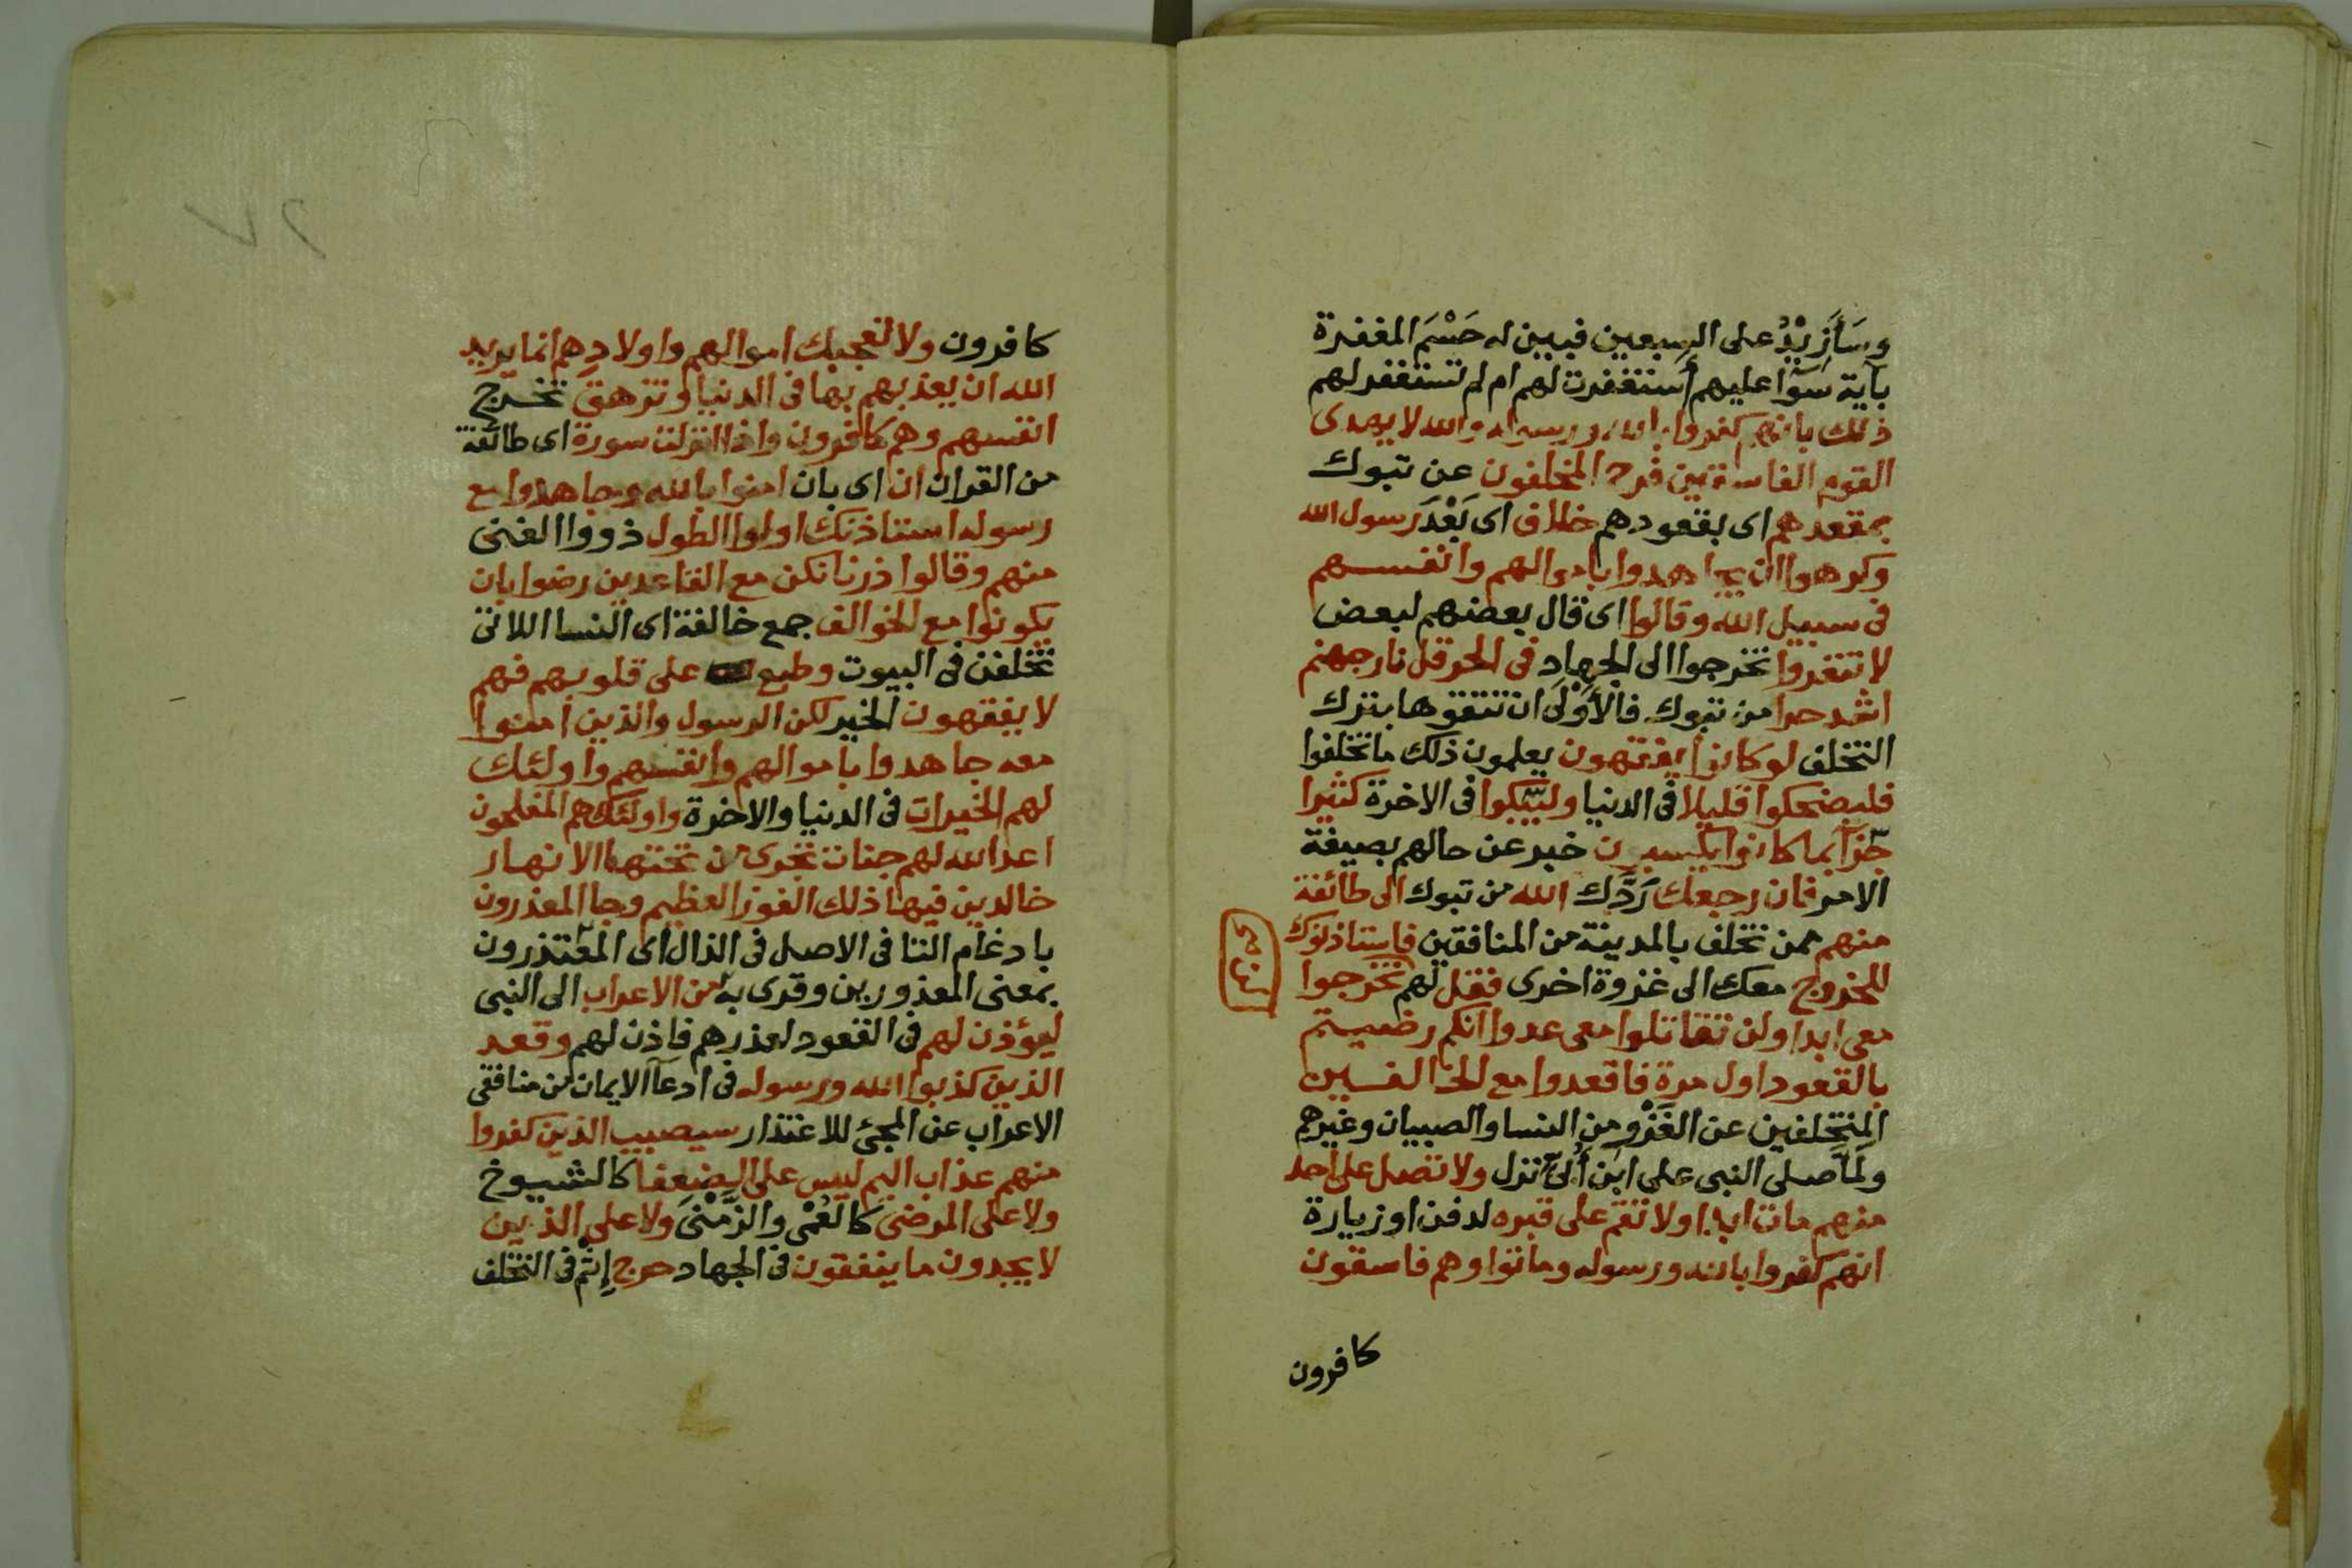 وسَأَزِيْدُ على السبعين فبين له حَسْمَ المغفرة
بآية سَوَآ عليهم أستغفرت لهم ام لم تستغفر لهم
ذلك بانهم كفروا بالله ورسوله والله لا يهدى
القوم الفاسقين فرح المخلفون عن تبوك
بمقعدهم اى بقعودهم خلاف اى بَعْدَ رسول الله
وكرهوا ان يجاهدوا باموالهم وانفسهم
فى سبيل الله وقالوا اى قال بعضهم لبعض
لا تنفروا تخرجوا الى الجهاد فى الحر قل نار جهنم
اشد حرا من تبوك فالأَوْلَى ان تتقوها بترك
التخلف لو كانوا يفقهون يعلمون ذلك ما تخلفوا
فليضحكوا قليلا فى الدنيا وليبكوا فى الاخرة كثيرا
جزآ بما كانوا يكسبون خبر عن حالهم بصيغة
الامر فان رجعك رَدَّك الله من تبوك الى طائفة
منهم ممن تخلف بالمدينة من المنافقين فاستاذنوك
للخروج معك الى غزوة اخرى فقل لهم تخرجوا
معى ابدا ولن تقاتلوا معى عدوا انكم رضيتم
بالقعود اول مرة فاقعدوا مع الخالفين
المتخلفين عن الغَزْو من النسا والصبيان وغيرهم
ولَمَّا صلى النبى على ابن أُبَىّ نزل ولا تصل على احد
منهم مات ابدا ولا تقم على قبره لدفن او زيارة
انهم كفروا بالله ورسوله وماتوا وهم فاسقون
كافرون
كافرون ولا تعجبك اموالهم واولادهم انما يريد
الله ان يعذبهم بها فى الدنيا وتزهق تخرج
انفسهم وهم كافرون واذا انزلت سورة اى طائفة
من القران ان اى بان امنوا بالله وجاهدوا مع
رسوله استاذنك اولوا الطول ذووا الغنى
منهم وقالوا ذرنا نكن مع القاعدين رضوا بان
يكونوا مع الخوالف جمع خالفة اى النسا اللاتى
تخلفن فى البيوت وطبع على قلوبهم فهم
لا يفقهون الخير لكن الرسول والذين امنوا
معه جاهدوا باموالهم وانفسهم واولئك
لهم الخيرات فى الدنيا والاخرة واولئك هم المفلحون
اعد الله لهم جنات تجرى من تحتها الانهار
خالدين فيها ذلك الفوز العظيم وجا المعذرون
بادغام التا فى الاصل فى الذال اى المعتذرون
بمعنى المعذورين وقرى به من الاعراب الى النبى
ليؤذن لهم فى القعود لعذرهم فاذن لهم وقعد
الذين كذبوا الله ورسوله فى ادعآ الايمان من منافقى
الاعراب عن المجئ للاعتذار سيصيب الذين كفروا
منهم عذاب اليم ليس على الضعفا كالشيوخ
ولا على المرضى كالعُمْى والزَّمْنَى ولا على الذين
لا يجدون ما ينفقون فى الجهاد حرج إِثْم فى التخلف